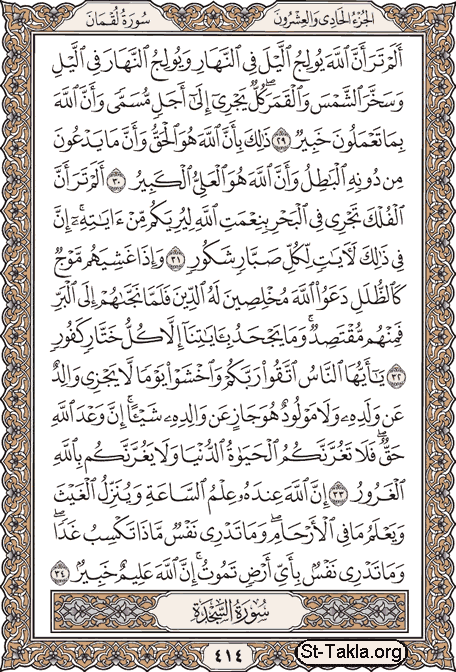 الجزء الحادى والعشرون
سورة لقمان
أَلَمْ تَرَ أَنَّ ٱللَّهَ يُولِجُ ٱلَّيْلَ فِى ٱلنَّهَارِ وَيُولِجُ ٱلنَّهَارَ فِى ٱلَّيْلِ
وَسَخَّرَ ٱلشَّمْسَ وَٱلْقَمَرَ كُلٌّ يَجْرِىٓ إِلَىٰٓ أَجَلٍ مُّسَمًّى وَأَنَّ ٱللَّهَ
بِمَا تَعْمَلُونَ خَبِيرٌ ٢٩ ذَٰلِكَ بِأَنَّ ٱللَّهَ هُوَ ٱلْحَقُّ وَأَنَّ مَا يَدْعُونَ
مِن دُونِهِ ٱلْبَٰطِلُ وَأَنَّ ٱللَّهَ هُوَ ٱلْعَلِىُّ ٱلْكَبِيرُ ٣٠ أَلَمْ تَرَ أَنَّ
ٱلْفُلْكَ تَجْرِى فِى ٱلْبَحْرِ بِنِعْمَتِ ٱللَّهِ لِيُرِيَكُم مِّنْ ءَايَٰتِهِۦٓ ۚ إِنَّ
فِى ذَٰلِكَ لَءَايَٰتٍ لِّكُلِّ صَبَّارٍ شَكُورٍ ٣١ وَإِذَا غَشِيَهُم مَّوْجٌ
كَٱلظُّلَلِ دَعَوُا۟ ٱللَّهَ مُخْلِصِينَ لَهُ ٱلدِّينَ فَلَمَّا نَجَّىٰهُمْ إِلَى ٱلْبَرِّ
فَمِنْهُم مُّقْتَصِدٌ ۚ وَمَا يَجْحَدُ بِـَٔايَٰتِنَآ إِلَّا كُلُّ خَتَّارٍ كَفُورٍ
٣٢ يَٰٓأَيُّهَا ٱلنَّاسُ ٱتَّقُوا۟ رَبَّكُمْ وَٱخْشَوْا۟ يَوْمًا لَّا يَجْزِى وَالِدٌ
عَن وَلَدِهِۦ وَلَا مَوْلُودٌ هُوَ جَازٍ عَن وَالِدِهِۦ شَيْـًٔا ۚ إِنَّ وَعْدَ ٱللَّهِ
حَقٌّ ۖ فَلَا تَغُرَّنَّكُمُ ٱلْحَيَوٰةُ ٱلدُّنْيَا وَلَا يَغُرَّنَّكُم بِٱللَّهِ
ٱلْغَرُورُ ٣٣ إِنَّ ٱللَّهَ عِندَهُۥ عِلْمُ ٱلسَّاعَةِ وَيُنَزِّلُ ٱلْغَيْثَ
وَيَعْلَمُ مَا فِى ٱلْأَرْحَامِ ۖ وَمَا تَدْرِى نَفْسٌ مَّاذَا تَكْسِبُ غَدًا ۖ
وَمَا تَدْرِى نَفْسٌۢ بِأَىِّ أَرْضٍ تَمُوتُ ۚ إِنَّ ٱللَّهَ عَلِيمٌ خَبِيرٌۢ ٣٤
سُورَةُ السَّجْدَةِ
٤١٤
St-Takla.org